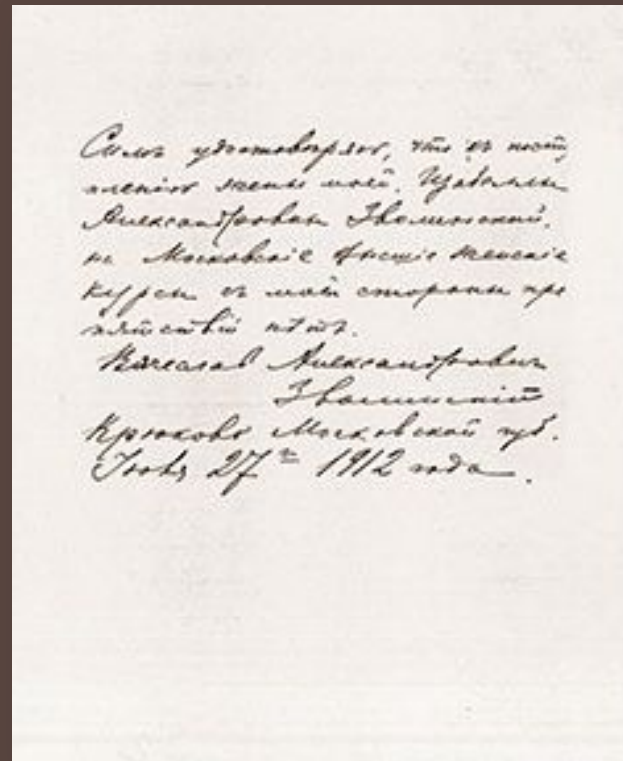 Симъ удостовѣряю, что къ посту
пленію жены моей, Изабеллы
Александровны Зволинской,
на Московскіе Высшіе Женскіе
Курсы съ моей стороны пре
пятствій нѣтъ.
Вячеславъ Александровичъ
Зволинскій
Крюково Московской губ.
27го 1912 года.